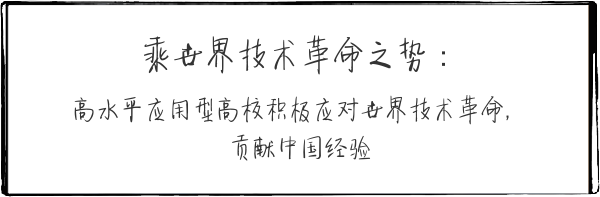 乘世界技术革命之势：
高水平应用型高校积极应对世界技术革命，
贡献中国经验